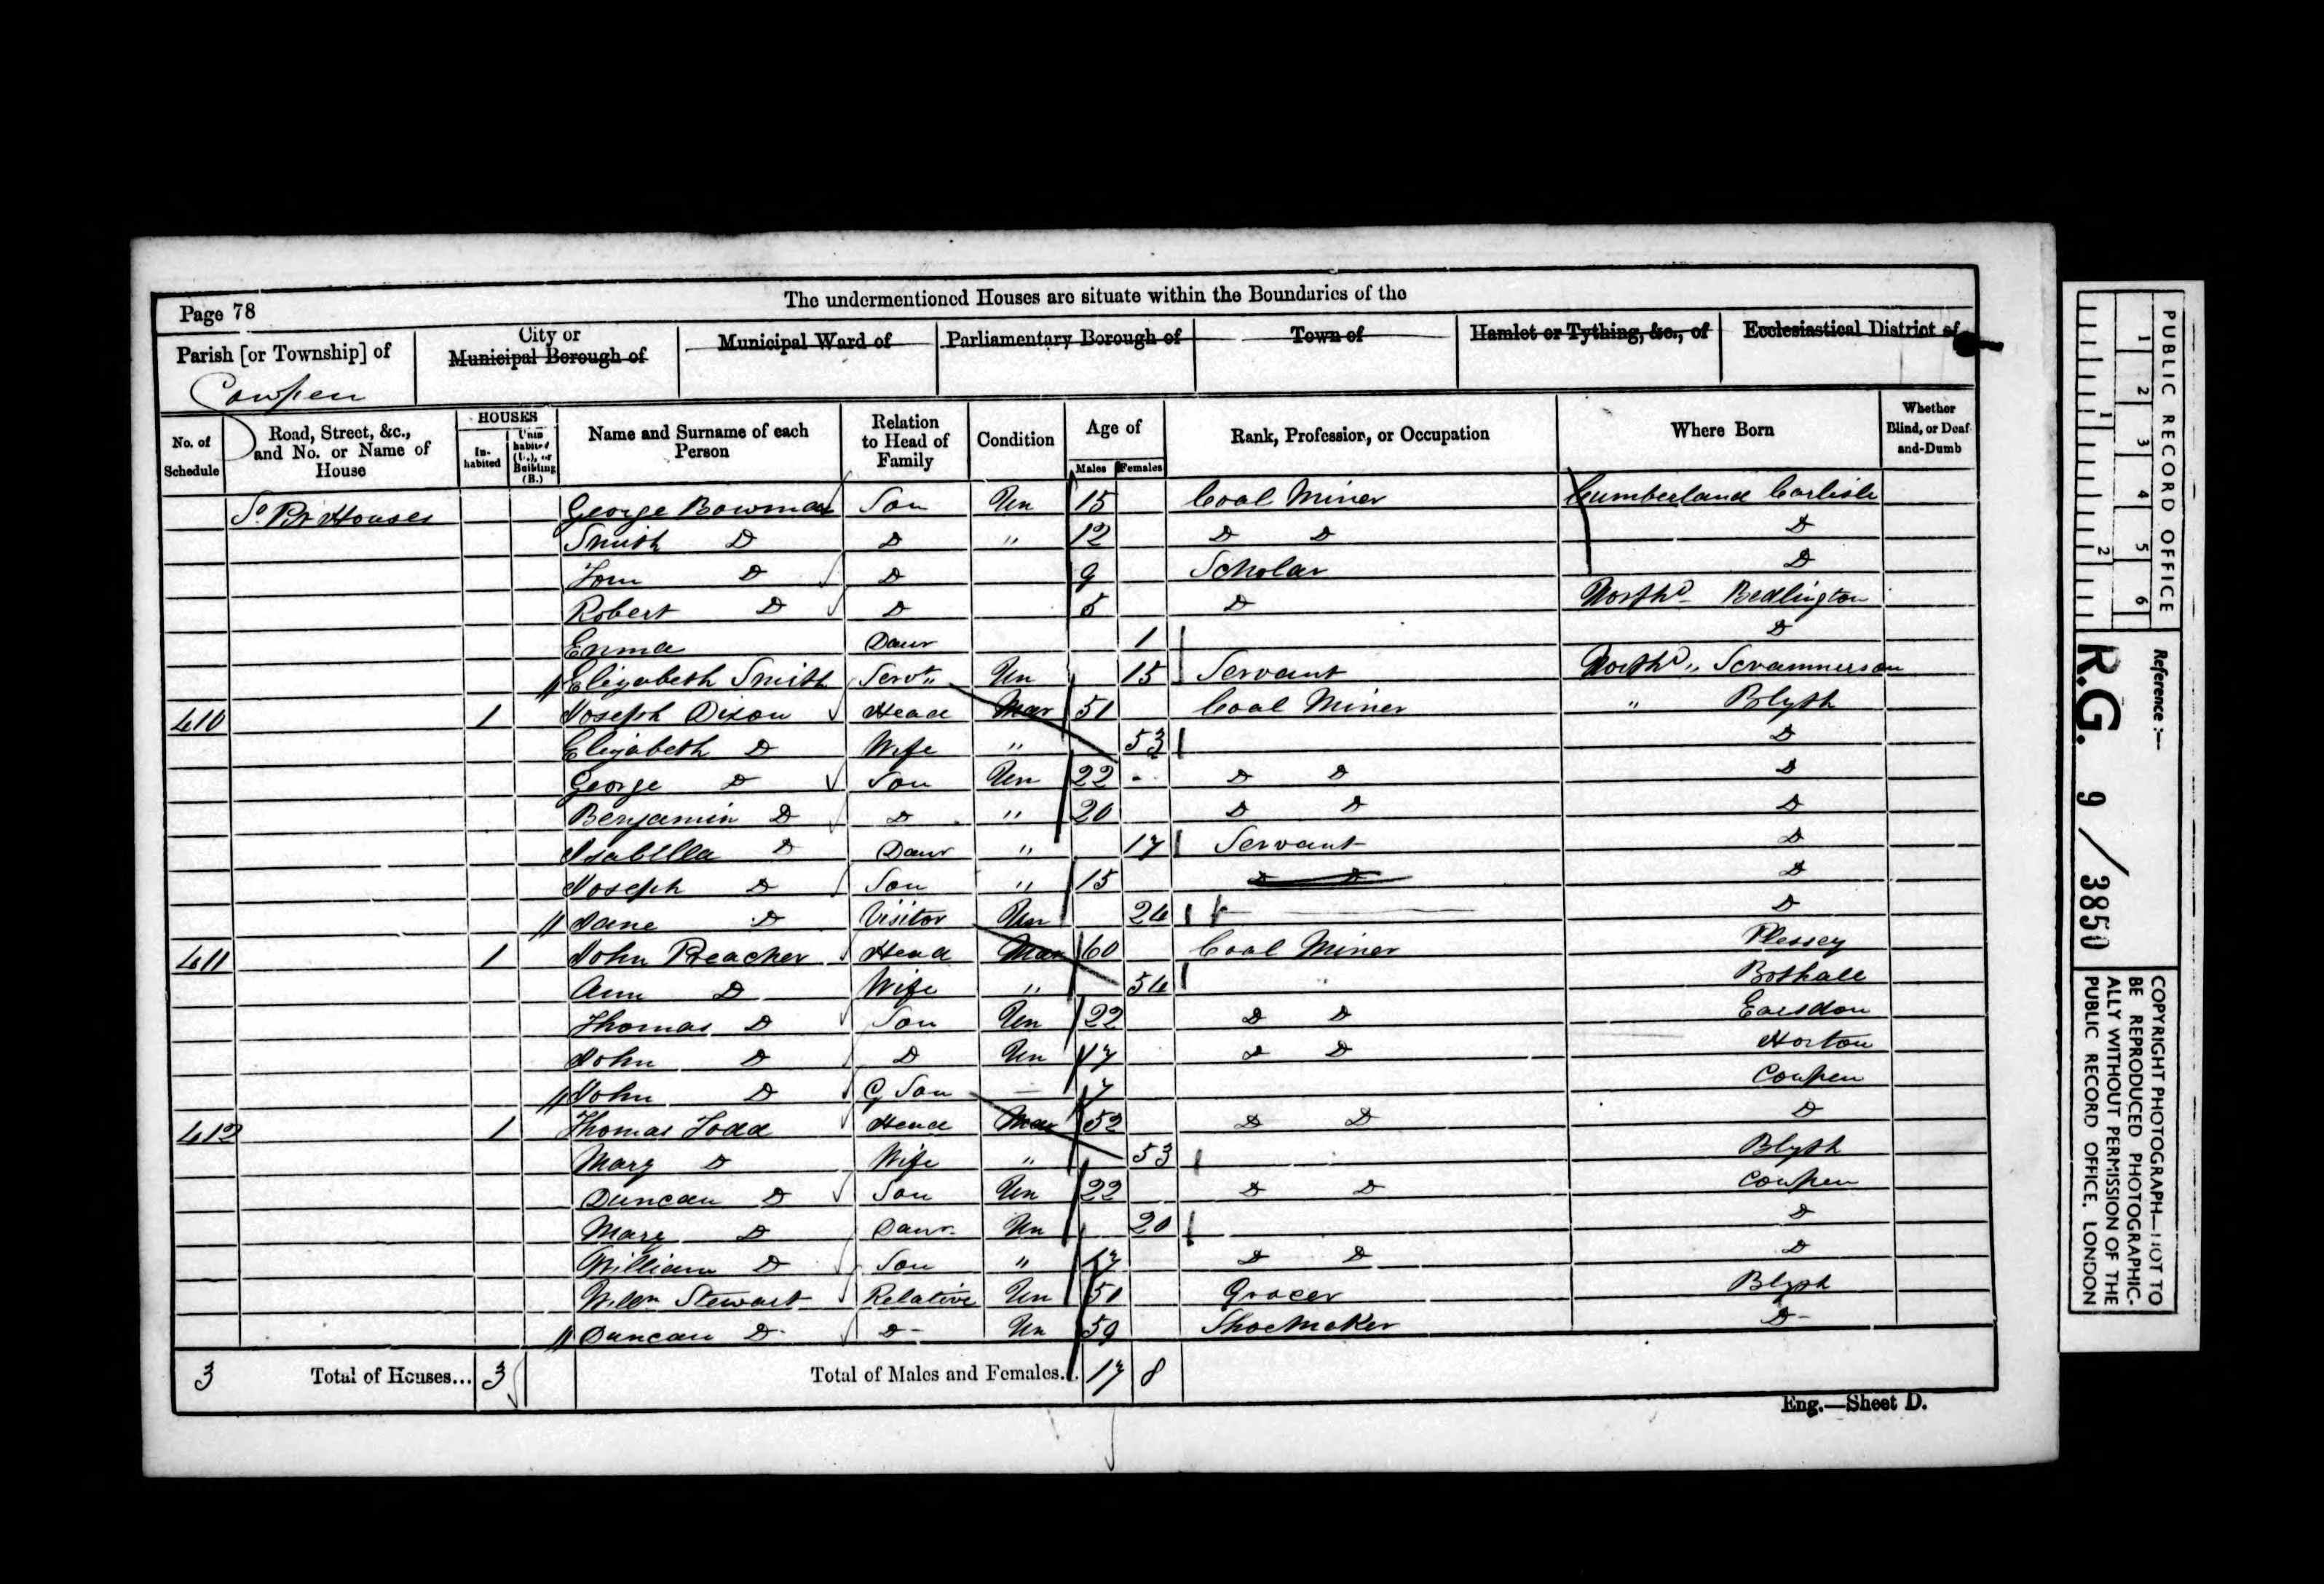 Page 78
The undermentioned Houses are situate within the Boundaries of the
Parish [or Township] of
Cowpen
City or
Municipal Borough of
Municipal Ward of
Parliamentary Borough of
Town of
Hamlet or Tything, &c., of
Ecclesiastical District of
No. of Schedule
Road, Street, &c., and No. or Name of House
HOUSES
In-habited
Unin habited (U.), or Building (B.)
Name and Surname of each Person
Relation to Head of Family
Condition
Age of
Males Females
Rank, Profession, or Occupation
Where Born
Whether Blind, or Deaf-and-Dumb
So Pit Houses George Bowman Son Un 15 Coal Miner Cumberland Carlisle
Smith D D " 12 D D D
Tom D D 9 Scholar D
Robert D D 5 D Northd Bedlington
Emma Daur 1 D
Elizabeth Smith Servt Un 15 Servant Northd " Scrammerson
410 1 Joseph Dixon Head Mar 51 Coal Miner " Blyth
Elizabeth D Wife " 53 D
George D Son Un 22 D D D
Benjamin D D " 20 D D D
Isabella D Daur " 17 Servant D
Joseph D Son " 15 D D D
Jane D Visitor Un 24 D
411 1 John Preacher Head Mar 60 Coal Miner Plessey
Ann D Wife " 54 Bothall
Thomas D Son Un 22 D D Earsdon
John D D Un 17 D D Horton
John D G Son 7 Cowpen
412 1 Thomas Todd Head Mar 52 D D D
Mary D Wife " 53 Blyth
Duncan D Son Un 22 D D Cowpen
Mary D Daur Un 20 D
William D Son " 17 D D D
Willm Stewart Relative Un 51 Grocer Blyth
Duncan D D Un 59 ShoeMaker D
3 Total of Houses... 3 Total of Males and Females... 17 8
Eng.—Sheet D.
PUBLIC RECORD OFFICE
1 2 3 4 5 6
1 2
Reference :—
R.G. 9/3850
COPYRIGHT PHOTOGRAPH—NOT TO
BE REPRODUCED PHOTOGRAPHIC-
ALLY WITHOUT PERMISSION OF THE
PUBLIC RECORD OFFICE, LONDON